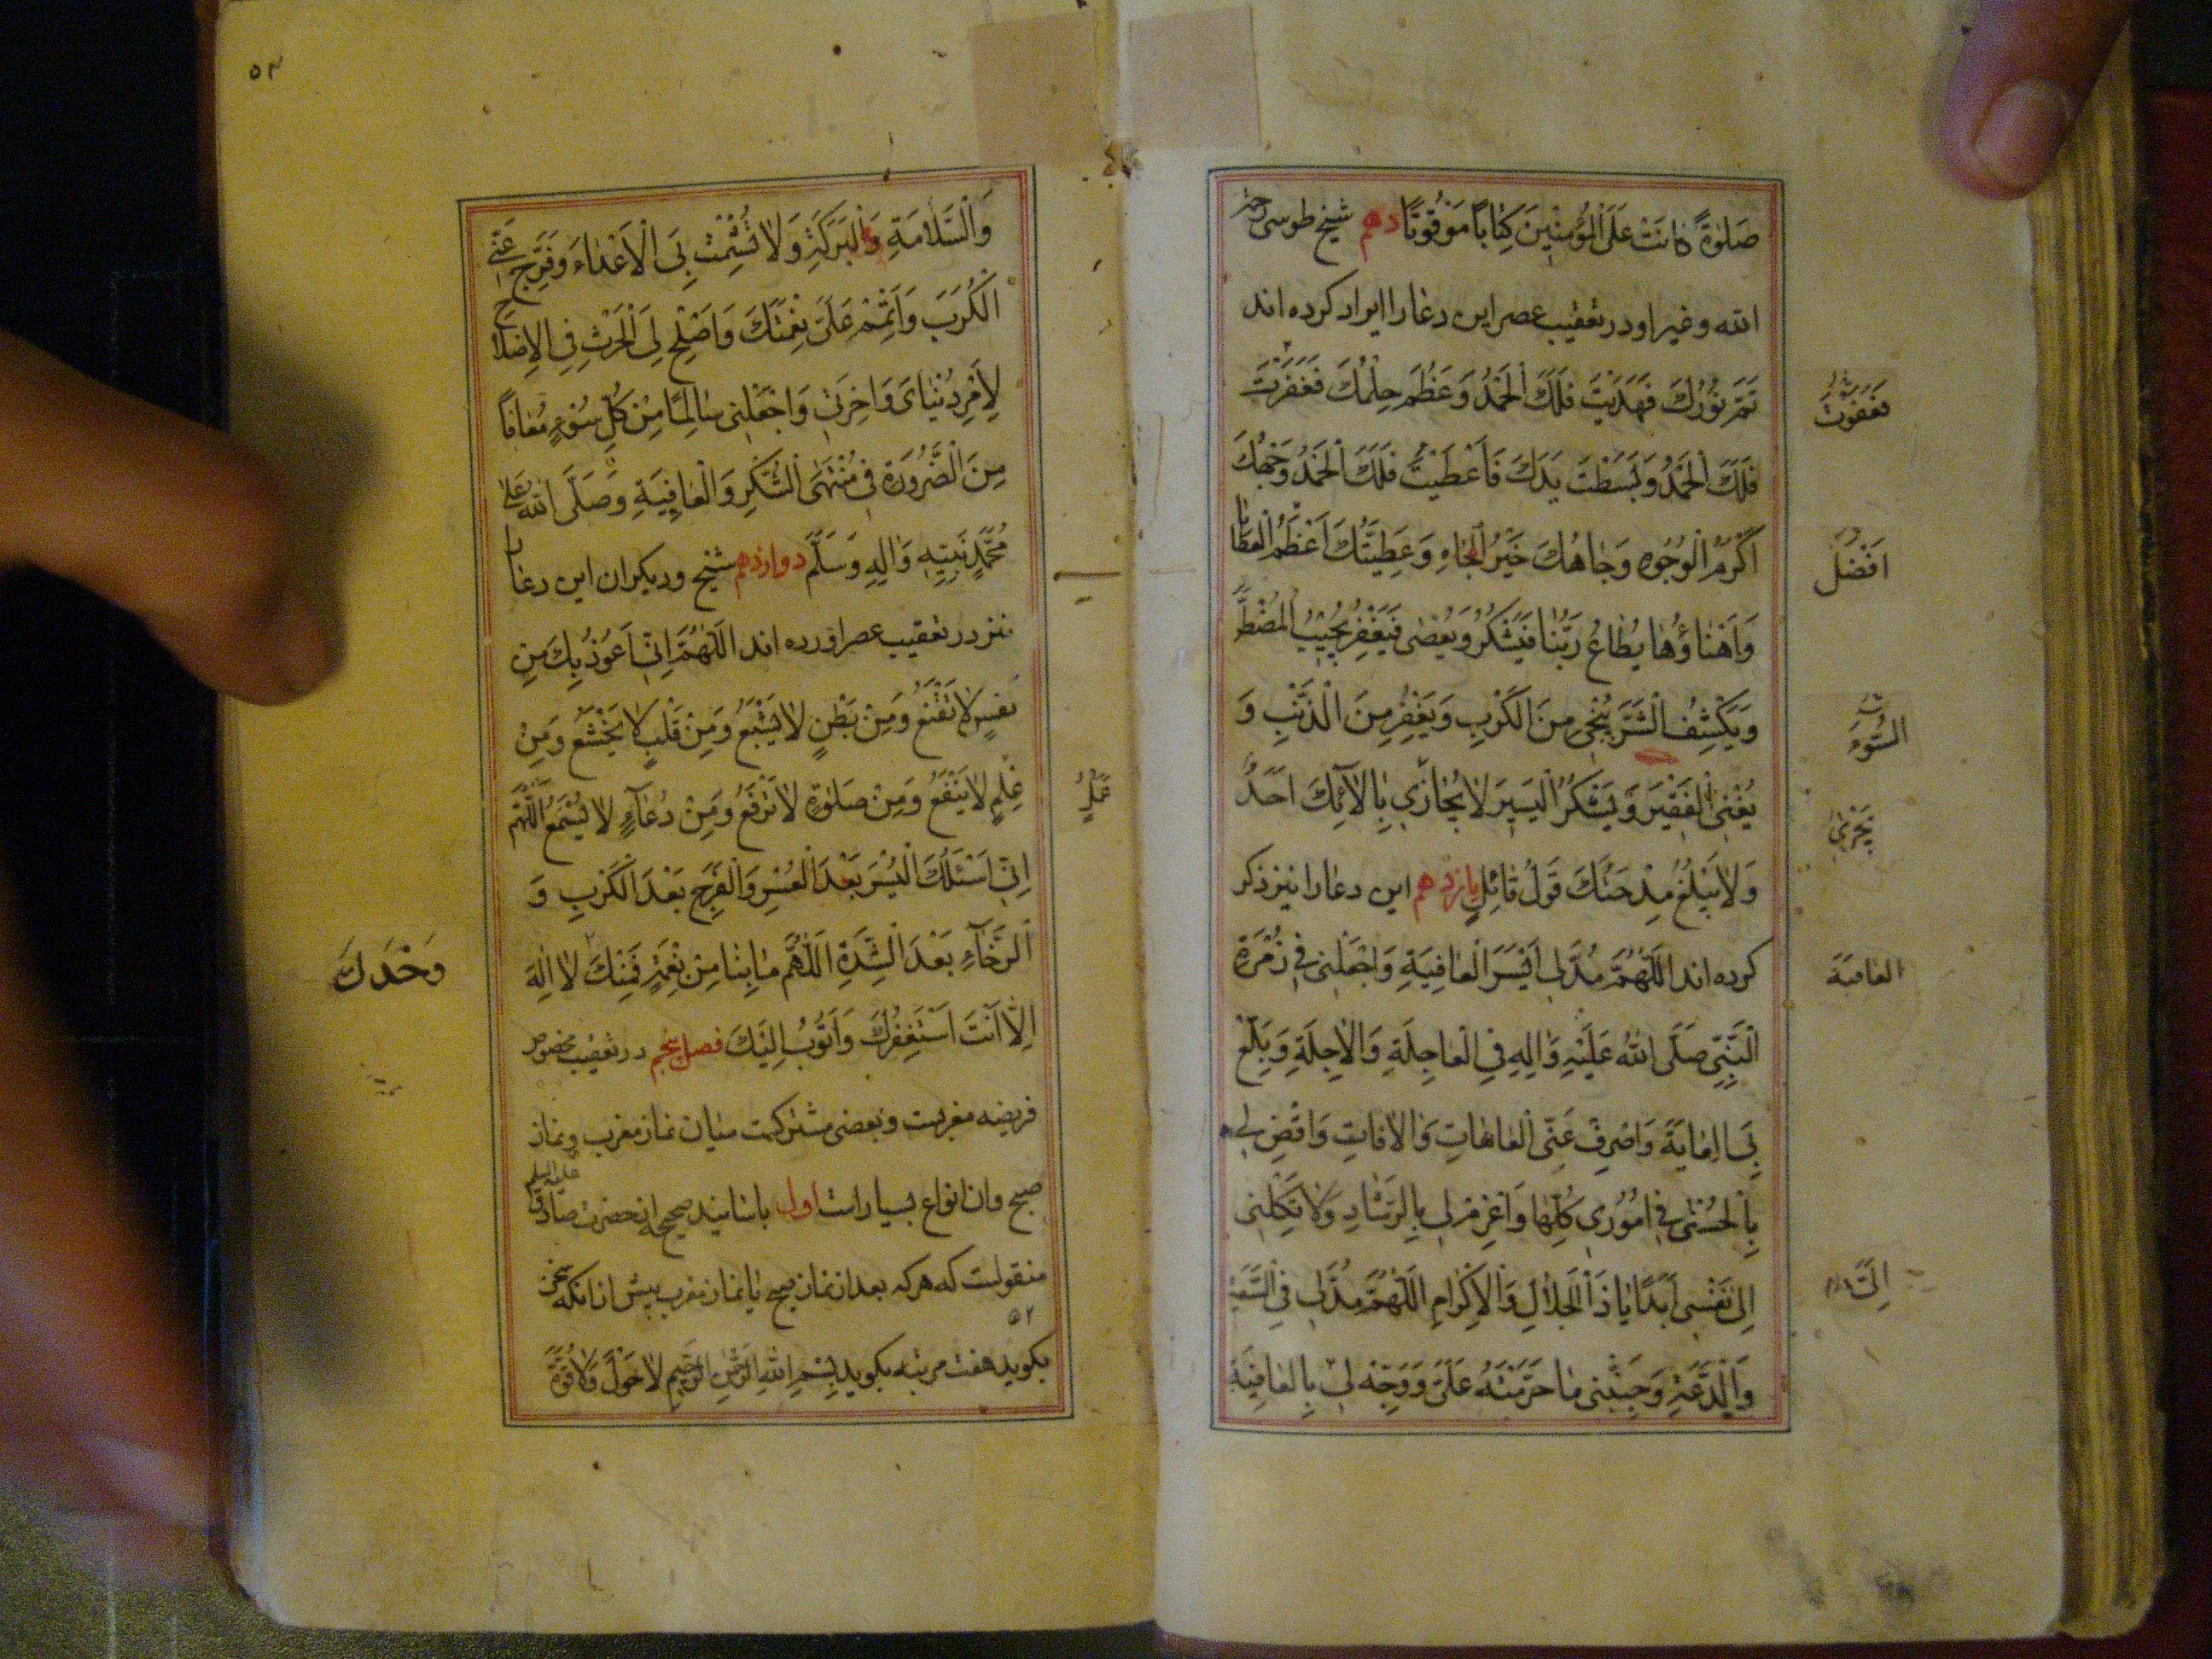 صَلٰوةً كانَتْ عَلَى الْمُؤْمِنينَ كِتٰاباً مَوْقُوتًا دهم شيخ طوسى رحمة
الله وغير او در تعقيب عصر اين دعا را ايراد كرده اند
تَمَّ نُورُكَ فَهَدَيْتَ فَلَكَ الْحَمْدُ وَعَظُمَ حِلْمُكَ فَغَفَرْتَ
فَلَكَ الْحَمْدُ وَبَسَطْتَ يَدَكَ فَاَعْطَيْتَ فَلَكَ الْحَمْدُ وَجْهُكَ
اَكْرَمُ الْوُجُوهِ وَجٰاهُكَ خَيْرُ الْجٰاهِ وَعَطِيَّتُكَ اَعْظَمُ الْعَطٰايٰا
وَاَهْنٰاؤُهٰا يُطٰاعُ رَبُّنٰا فَيَشْكُرُ وَيُعْصٰى فَيَغْفِرُ يُجيبُ الْمُضْطَرَّ
وَيَكْشِفُ الضُّرَّ يُنْجى مِنَ الْكَرْبِ وَيَغْفِرُ مِنَ الذَّنْبِ وَ
يُغْنِى الْفَقيرَ وَيَشْكُرُ الْيَسيرَ لٰا يُجٰازى بِاٰلٰائِكَ اَحَدٌ
وَلٰا يَبْلُغُ مِدْحَتَكَ قَوْلُ قٰائِلٍ يازدهم اين دعا را نيز ذكر
كرده اند اَللّٰهُمَّ مُدَّلى اَيْسَرَ الْعٰافِيَةِ وَاجْعَلْنى فى زُمْرَةِ
النَّبِىِّ صَلَّى اللهُ عَلَيْهِ وَاٰلِهِ فِى الْعٰاجِلَةِ وَالْاٰجِلَةِ وَبَلِّغْ
بِىَ الْغٰايَةَ وَاصْرِفْ عَنِّى الْعٰاهٰاتِ وَالْاٰفٰاتِ وَاقْضِ لى
بِالْحُسْنٰى فى اُمُورى كُلِّهٰا وَاعْزِمْ لى بِالرَّشٰادِ وَلٰا تَكِلْنى
اِلٰى نَفْسى اَبَدًا يٰا ذَا الْجَلٰالِ وَالْاِكْرٰامِ اَللّٰهُمَّ مُدَّلى فِى السَّعَةِ
وَالدَّعَةِ وَجَنِّبْنى مٰا حَرَّمْتَهُ عَلَىَّ وَوَجِّهْ لى بِالْعٰافِيَةِ
فَعَفَوْتَ
اَفْضَلُ
السُّوءَ
يَجْزى
العافية
۵۳
وَالسَّلٰامَةِ وَالْبَرَكَةِ وَلٰا تُشْمِتْ بِىَ الْاَعْدٰاءَ وَفَرِّجْ عَنِّى
الْكُرَبَ وَاَتْمِمْ عَلَىَّ نِعْمَتَكَ وَاَصْلِحْ لِىَ الْحَرْثَ فِى الْاِصْلٰاحِ
لِاَمْرِ دُنْيٰاىَ وَاٰخِرَتى وَاجْعَلْنى سٰالِمًا مِنْ كُلِّ سُوءٍ مُعٰافاً
مِنَ الضَّرُورَةِ فى مُنْتَهَى الشُّكْرِ وَالْعٰافِيَةِ وَصَلَّى اللهُ عَلٰى
مُحَمَّدٍ نَبِيِّهِ وَاٰلِهِ وَسَلَّمَ دوازدهم شيخ وديكران اين دعا را
نيز در تعقيب عصر اورده اند اَللّٰهُمَّ اِنّى اَعُوذُ بِكَ مِنْ
نَفْسٍ لٰا تَقْنَعُ وَمِنْ بَطْنٍ لٰا يَشْبَعُ وَمِنْ قَلْبٍ لٰا يَخْشَعُ وَمِنْ
عِلْمٍ لٰا يَنْفَعُ وَمِنْ صَلٰوةٍ لٰا تُرْفَعُ وَمِنْ دُعٰاءٍ لٰا يُسْمَعُ اَللّٰهُمَّ
اِنّى اَسْئَلُكَ الْيُسْرَ بَعْدَ الْعُسْرِ وَالْفَرَجَ بَعْدَ الْكَرْبِ وَ
الرَّخٰاءَ بَعْدَ الشِّدَّةِ اَللّٰهُمَّ مٰا بِنٰا مِنْ نِعْمَةٍ فَمِنْكَ لٰا اِلٰهَ
اِلّٰا اَنْتَ اَسْتَغْفِرُكَ وَاَتُوبُ اِلَيْكَ فصل پنجم در تعقيب مخصوص
فريضه مغربست وبعضى مشتركست ميان نماز مغرب ونماز
صبح وان انواع بسيار است اول باسانيد صحيحه از حضرت صادق عليه السلم
منقولست كه هر كه بعد از نماز صبح يا نماز مغرب پيش از انكه سخن
بكويد هفت مرتبه بكويد بِسْمِ اللهِ الرَّحْمٰنِ الرَّحيمِ لٰا حَوْلَ وَلٰا قُوَّةَ
وَحْدَكَ
۵۲